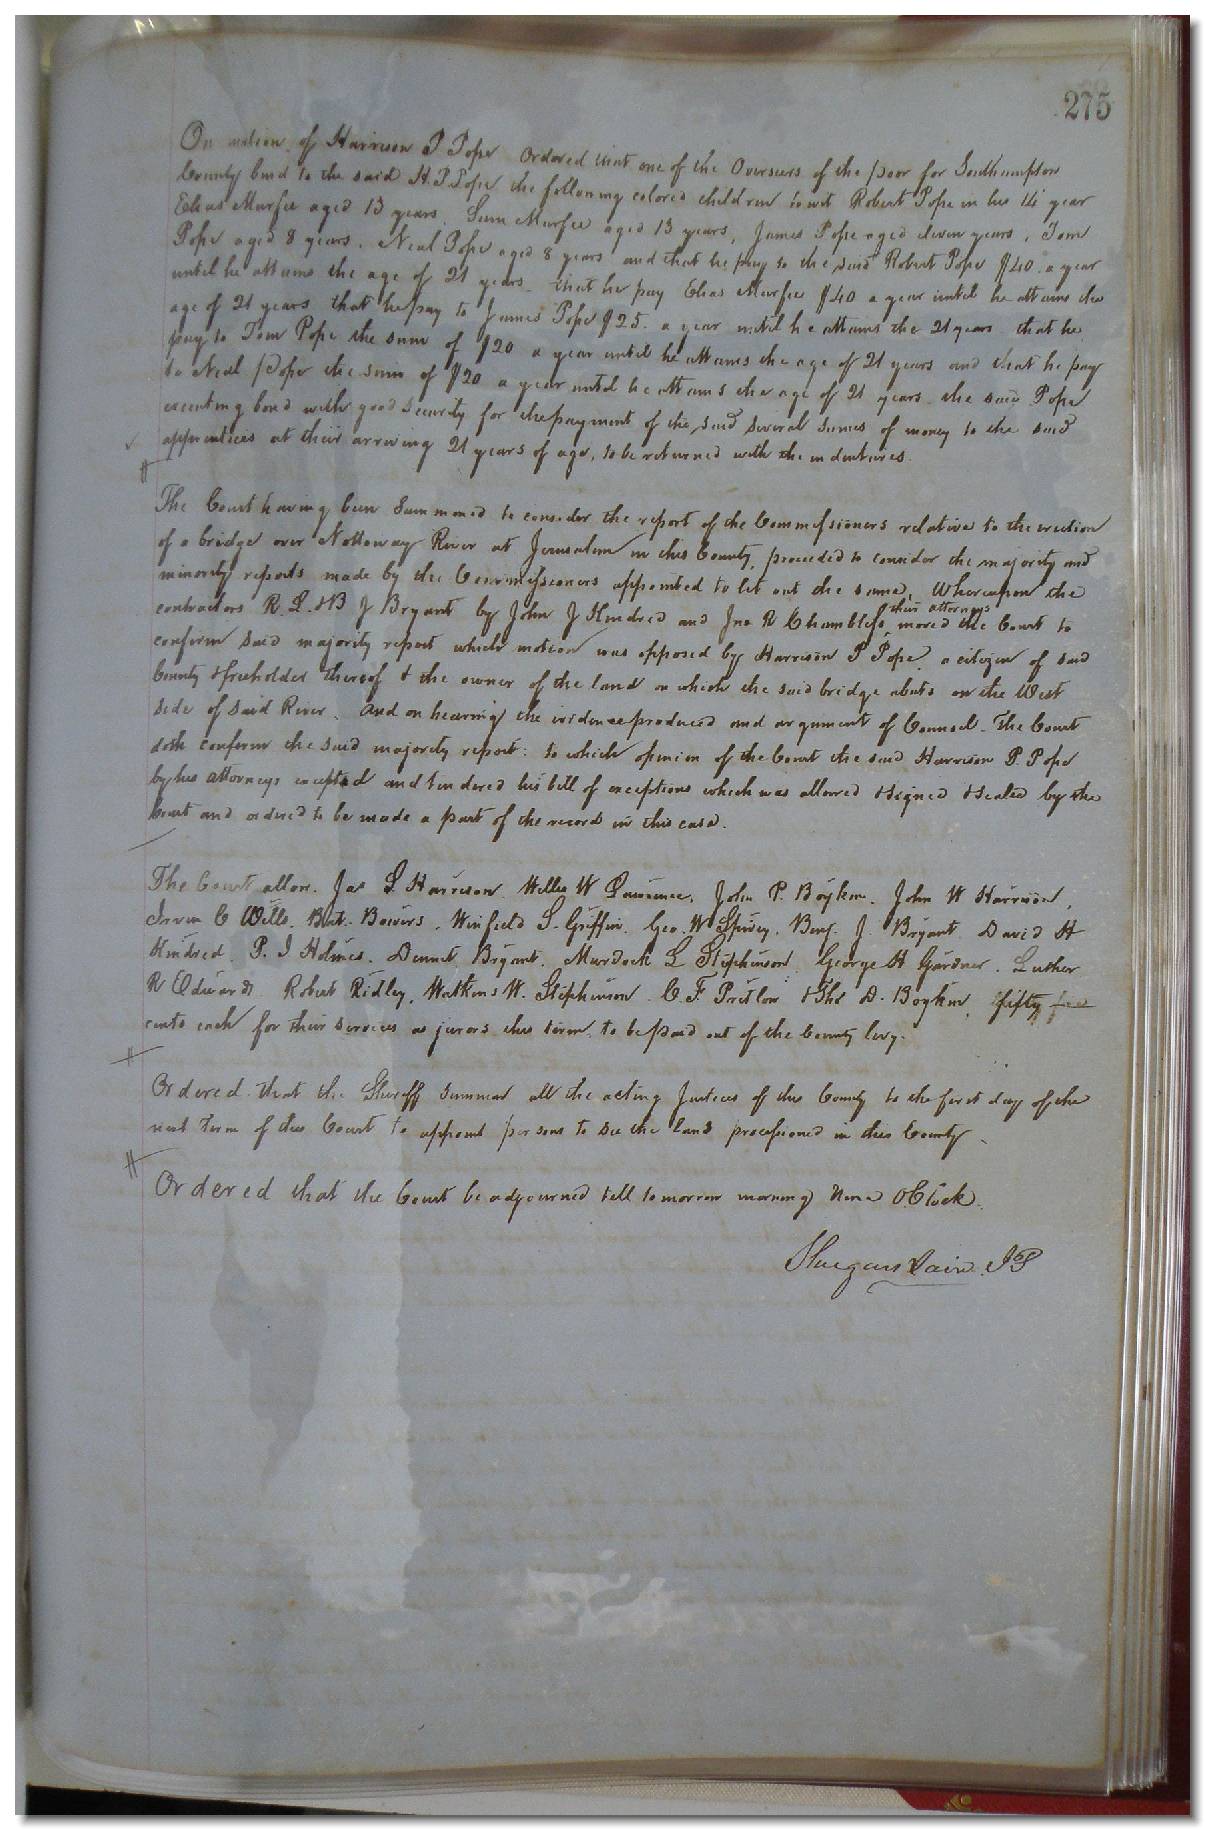 275
On motion of Harrison P Pope Ordered that one of the Overseers of the poor for Southampton
County bind to the said H. P. Pope the following colored children to wit Robert Pope in his 14 year
Elias Murfee aged 13 years, Sam Murfee aged 13 years, James Pope aged eleven years, Tom
Pope aged 8 years. Neal Pope aged 8 years and that he pay to the said Robert Pope $40 a year
until he attains the age of 21 years that he pay Elias Murfee $40 a year until he attains the
age of 21 years that he pay to James Pope $25. a year until he attains the 21 years that he
pay to Tom Pope the sum of $20 a year until he attains the age of 21 years and that he pay
to Neal Pope the sum of $20 a year until he attains the age of 21 years the said Pope
executing bond with good security for the payment of the said several sumes of money to the said
apprentices at their arriving 21 years of age, to be returned with the indentures.
The Court having been summoned to consider the report of the Commissioners relative to the erection
of a bridge over Nottoway River at Jerusalem in this County, proceeded to consider the majority and
minority reports made by the Commissioners appointed to let out the same, Whereupon the
contractors R. L. & B J Bryant by John J Kindred and Jno R Chambliss, their attorneys moved the Court to
confirm said majority report which motion was opposed by Harrison P Pope. a citizen of said
County & freeholder thereof & the owner of the land on which the said bridge abuts on the West
side of said River. And on hearing the evidence produced and argument of Counsel. The Court
doth confirm the said majority report: to which opinion of the Court the said Harrison P. Pope
by his attorneys excepted and tendered his bill of exceptions which was allowed & signed & sealed by the
Court and ordered to be made a part of the record in this case.
The Court allow. Jas L. Harrison. Willie W Lawrence, John P. Boykin. John W Harrison,
Irvin C Wills. Bowers, Winfield S. Griffin. Geo. W Spivey. Benj. J. Bryant. David H
Kindred. P. I Holmes. Dennet Bryant. Murdock L Stephenson. George H Gardner. Luther
R Edwards Robert Ridley, Watkins W. Stephenson. C. F. Pretlow & Tho D. Boykin, fifty
cents each for their services as jurors this term to be paid out of the County levy.
Ordered that the Sheriff summon all the acting Justices of this County to the first day of the
next term of this Court to appoint persons to see the land processioned in this County.
Ordered that the Court be adjourned till tomorrow morning Nine O'Clock.
JP